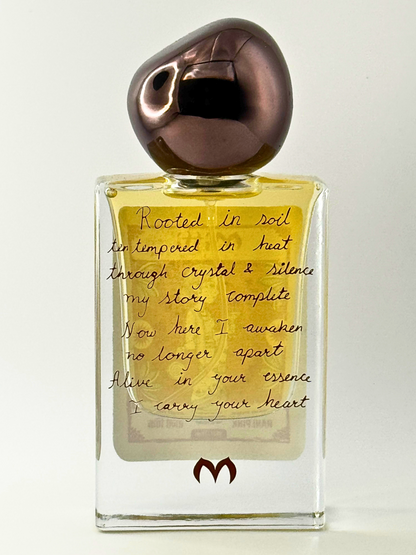 Rooted in soil
tempered in heat
through crystal & silence
my story complete
Now here I awaken
no longer apart
Alive in your essence
I carry your heart